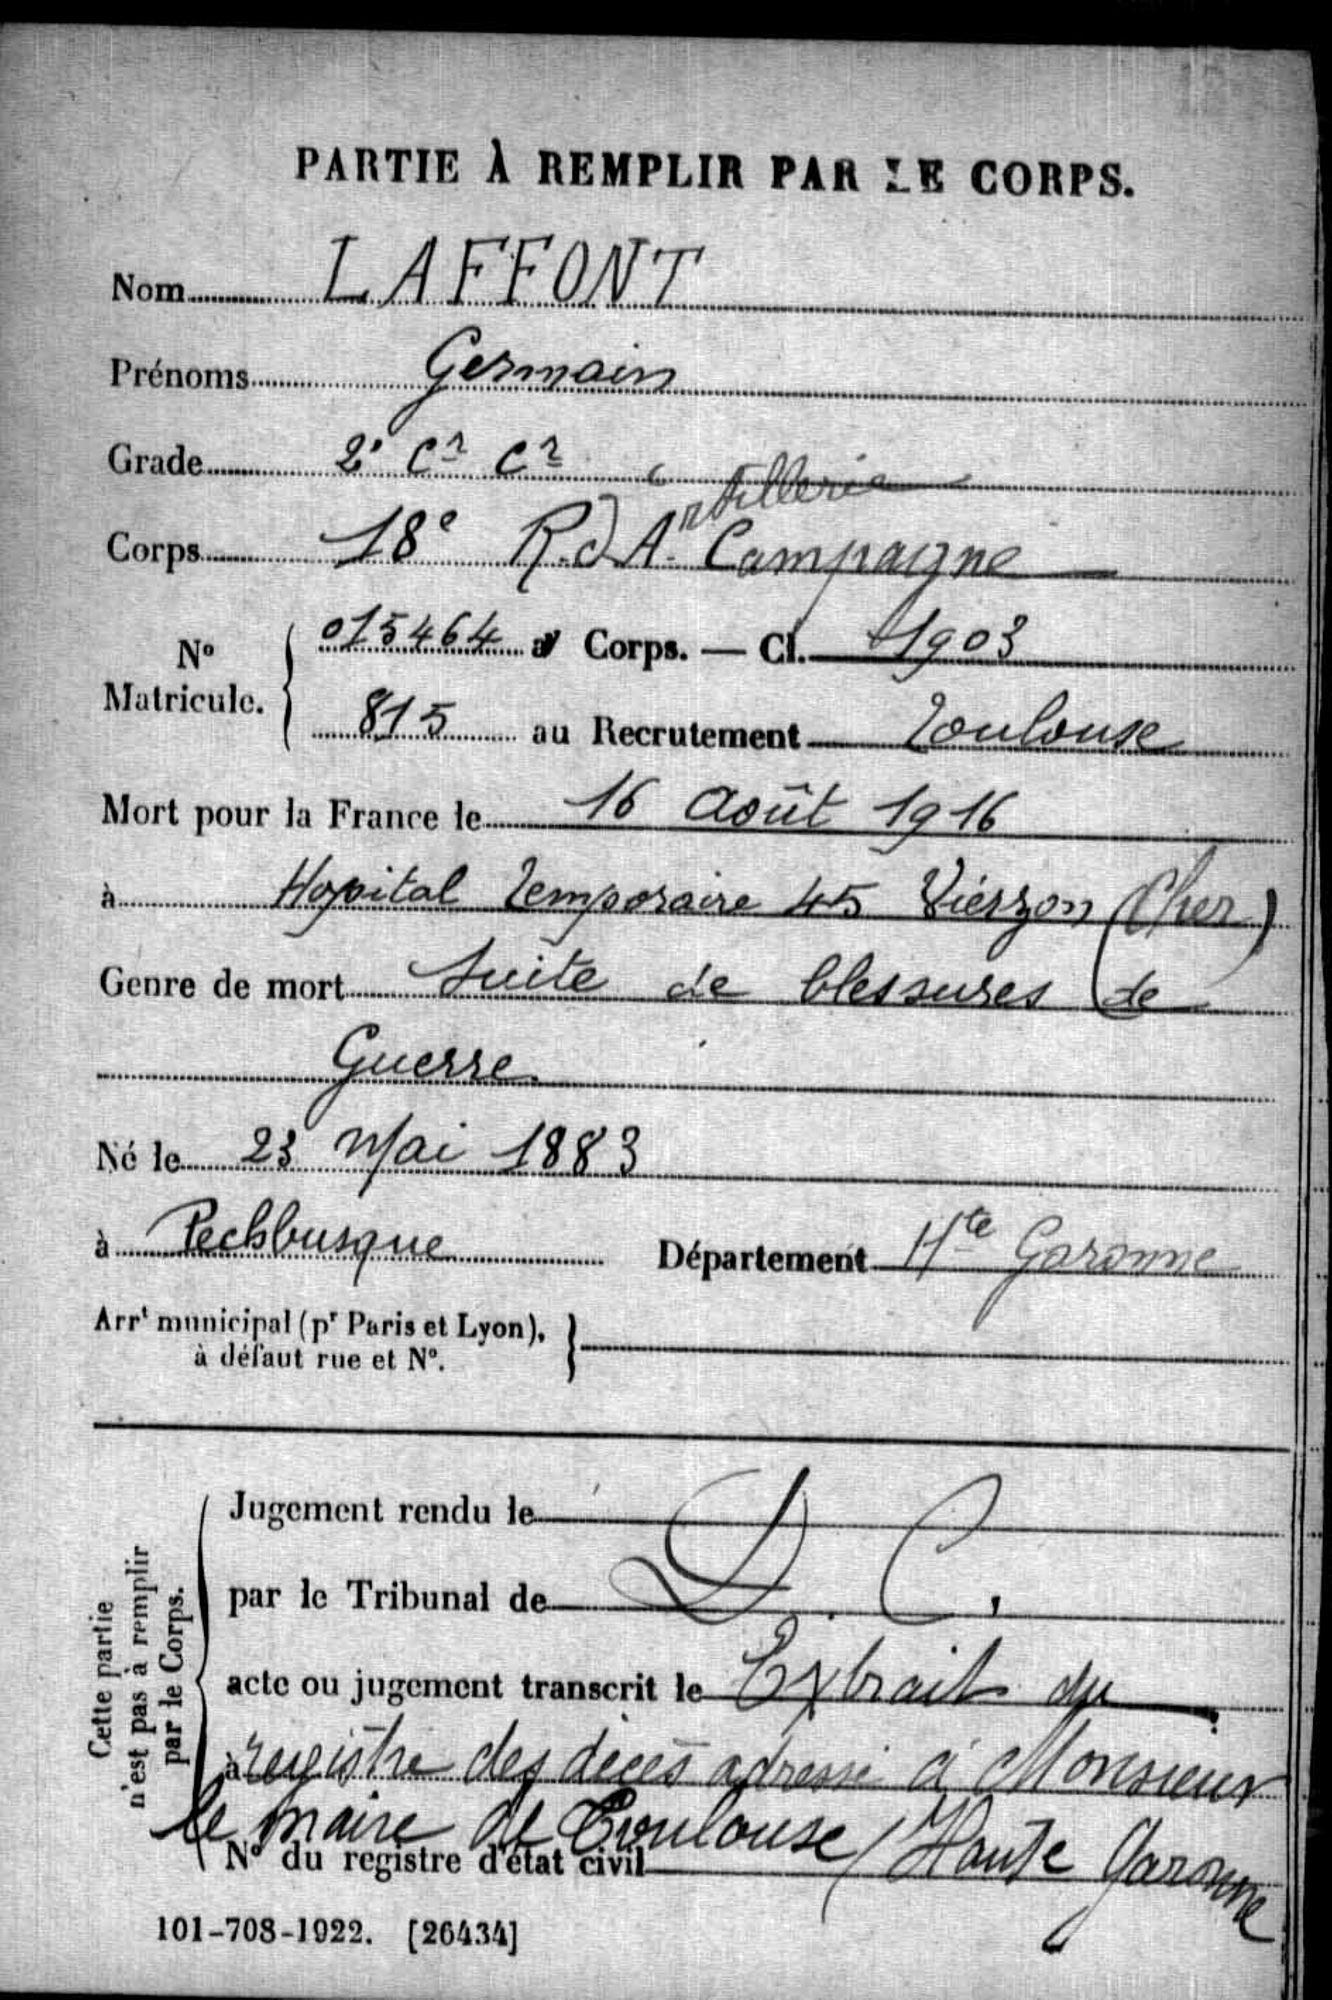 PARTIE À REMPLIR PAR LE CORPS.
Nom LAFFONT
Prénoms Germain
Grade 2e Cr Cr
Corps 18e R.d'Artillerie Campagne
No Matricule. 015464 au Corps. — Cl. 1903
815 au Recrutement Toulouse
Mort pour la France le 16 Août 1916
à Hopital Temporaire 45 Vierzon (Cher)
Genre de mort Suite de blessures de
Guerre
Né le 23 Mai 1883
à Pechbusque Département Hte Garonne
Arrt municipal (pr Paris et Lyon),
à défaut rue et No.
Cette partie
n'est pas à remplir
par le Corps.
Jugement rendu le D. C.
par le Tribunal de
acte ou jugement transcrit le Extrait du
à registre des décès adressé à Monsieur
le maire de Toulouse (Haute Garonne
No du registre d'état civil
101-708-1922. [26434]